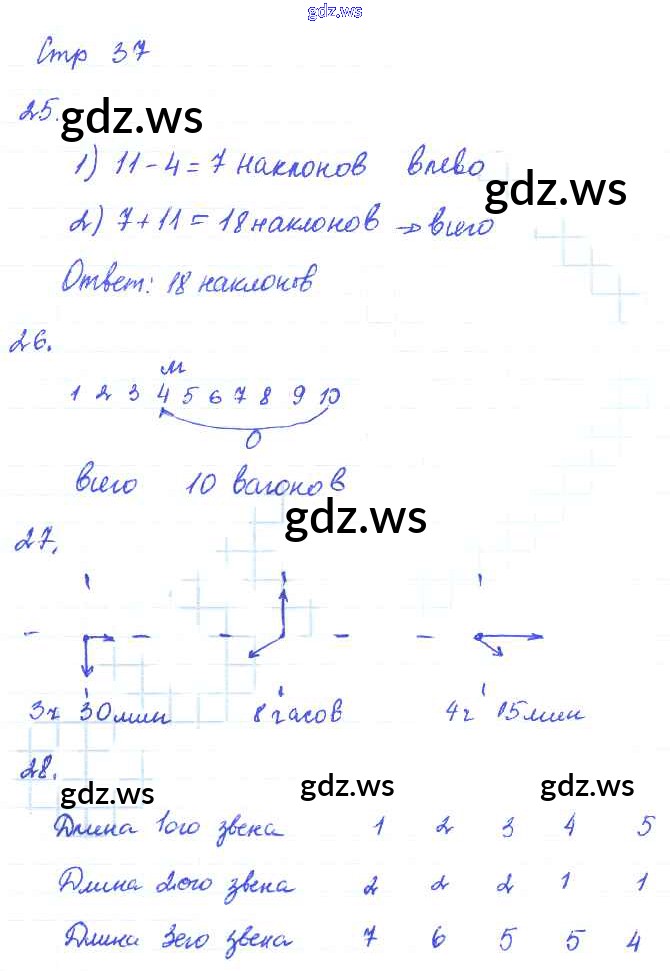 gdz.ws
Стр 37
25.
gdz.ws
1) 11 - 4 = 7 наклонов влево
gdz.ws
2) 7 + 11 = 18 наклонов → всего
Ответ: 18 наклонов
26.
м
1 2 3 4 5 6 7 8 9 10
О
всего 10 вагонов
gdz.ws
27.
3ч 30 мин 8 часов 4ч 15 мин
28.
gdz.ws gdz.ws gdz.ws
Длина 1ого звена 1 2 3 4 5
Длина 2ого звена 2 2 2 1 1
Длина 3его звена 7 6 5 5 4